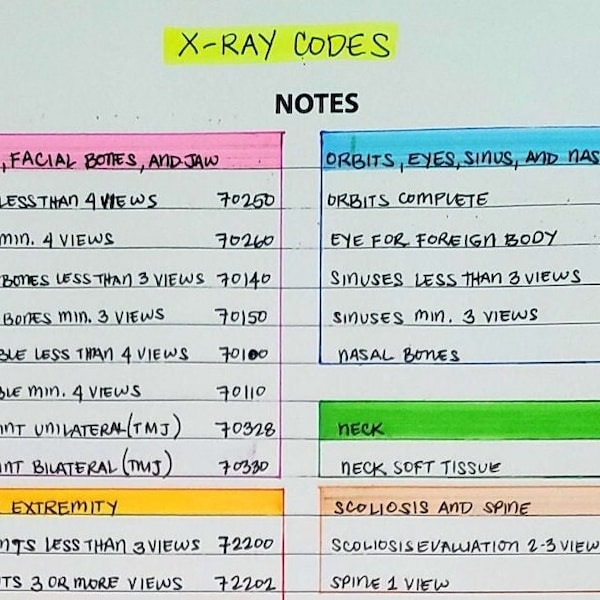 X-RAY CODES
NOTES
, FACIAL BONES, AND JAW
LESS THAN 4 VIEWS 70250
MIN. 4 VIEWS 70260
BONES LESS THAN 3 VIEWS 70140
BONES MIN. 3 VIEWS 70150
BLE LESS THAN 4 VIEWS 70100
BLE MIN. 4 VIEWS 70110
INT UNILATERAL (TMJ) 70328
INT BILATERAL (TMJ) 70330
EXTREMITY
NTS LESS THAN 3 VIEWS 72200
TS 3 OR MORE VIEWS 72202
ORBITS, EYES, SINUS, AND NAS
ORBITS COMPLETE
EYE FOR FOREIGN BODY
SINUSES LESS THAN 3 VIEWS
SINUSES MIN. 3 VIEWS
NASAL BONES
NECK
NECK SOFT TISSUE
SCOLIOSIS AND SPINE
SCOLIOSIS EVALUATION 2-3 VIEW
SPINE 1 VIEW